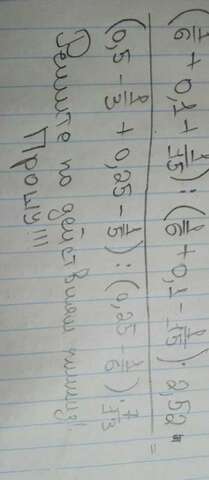 (1/6 + 0,1 + 1/15) : (1/6 + 0,1 - 1/15) · 2,52 =
(0,5 - 1/3 + 0,25 - 1/5) : (0,25 - 1/6) · 7/13
Решите по действиям
Прошу!!!